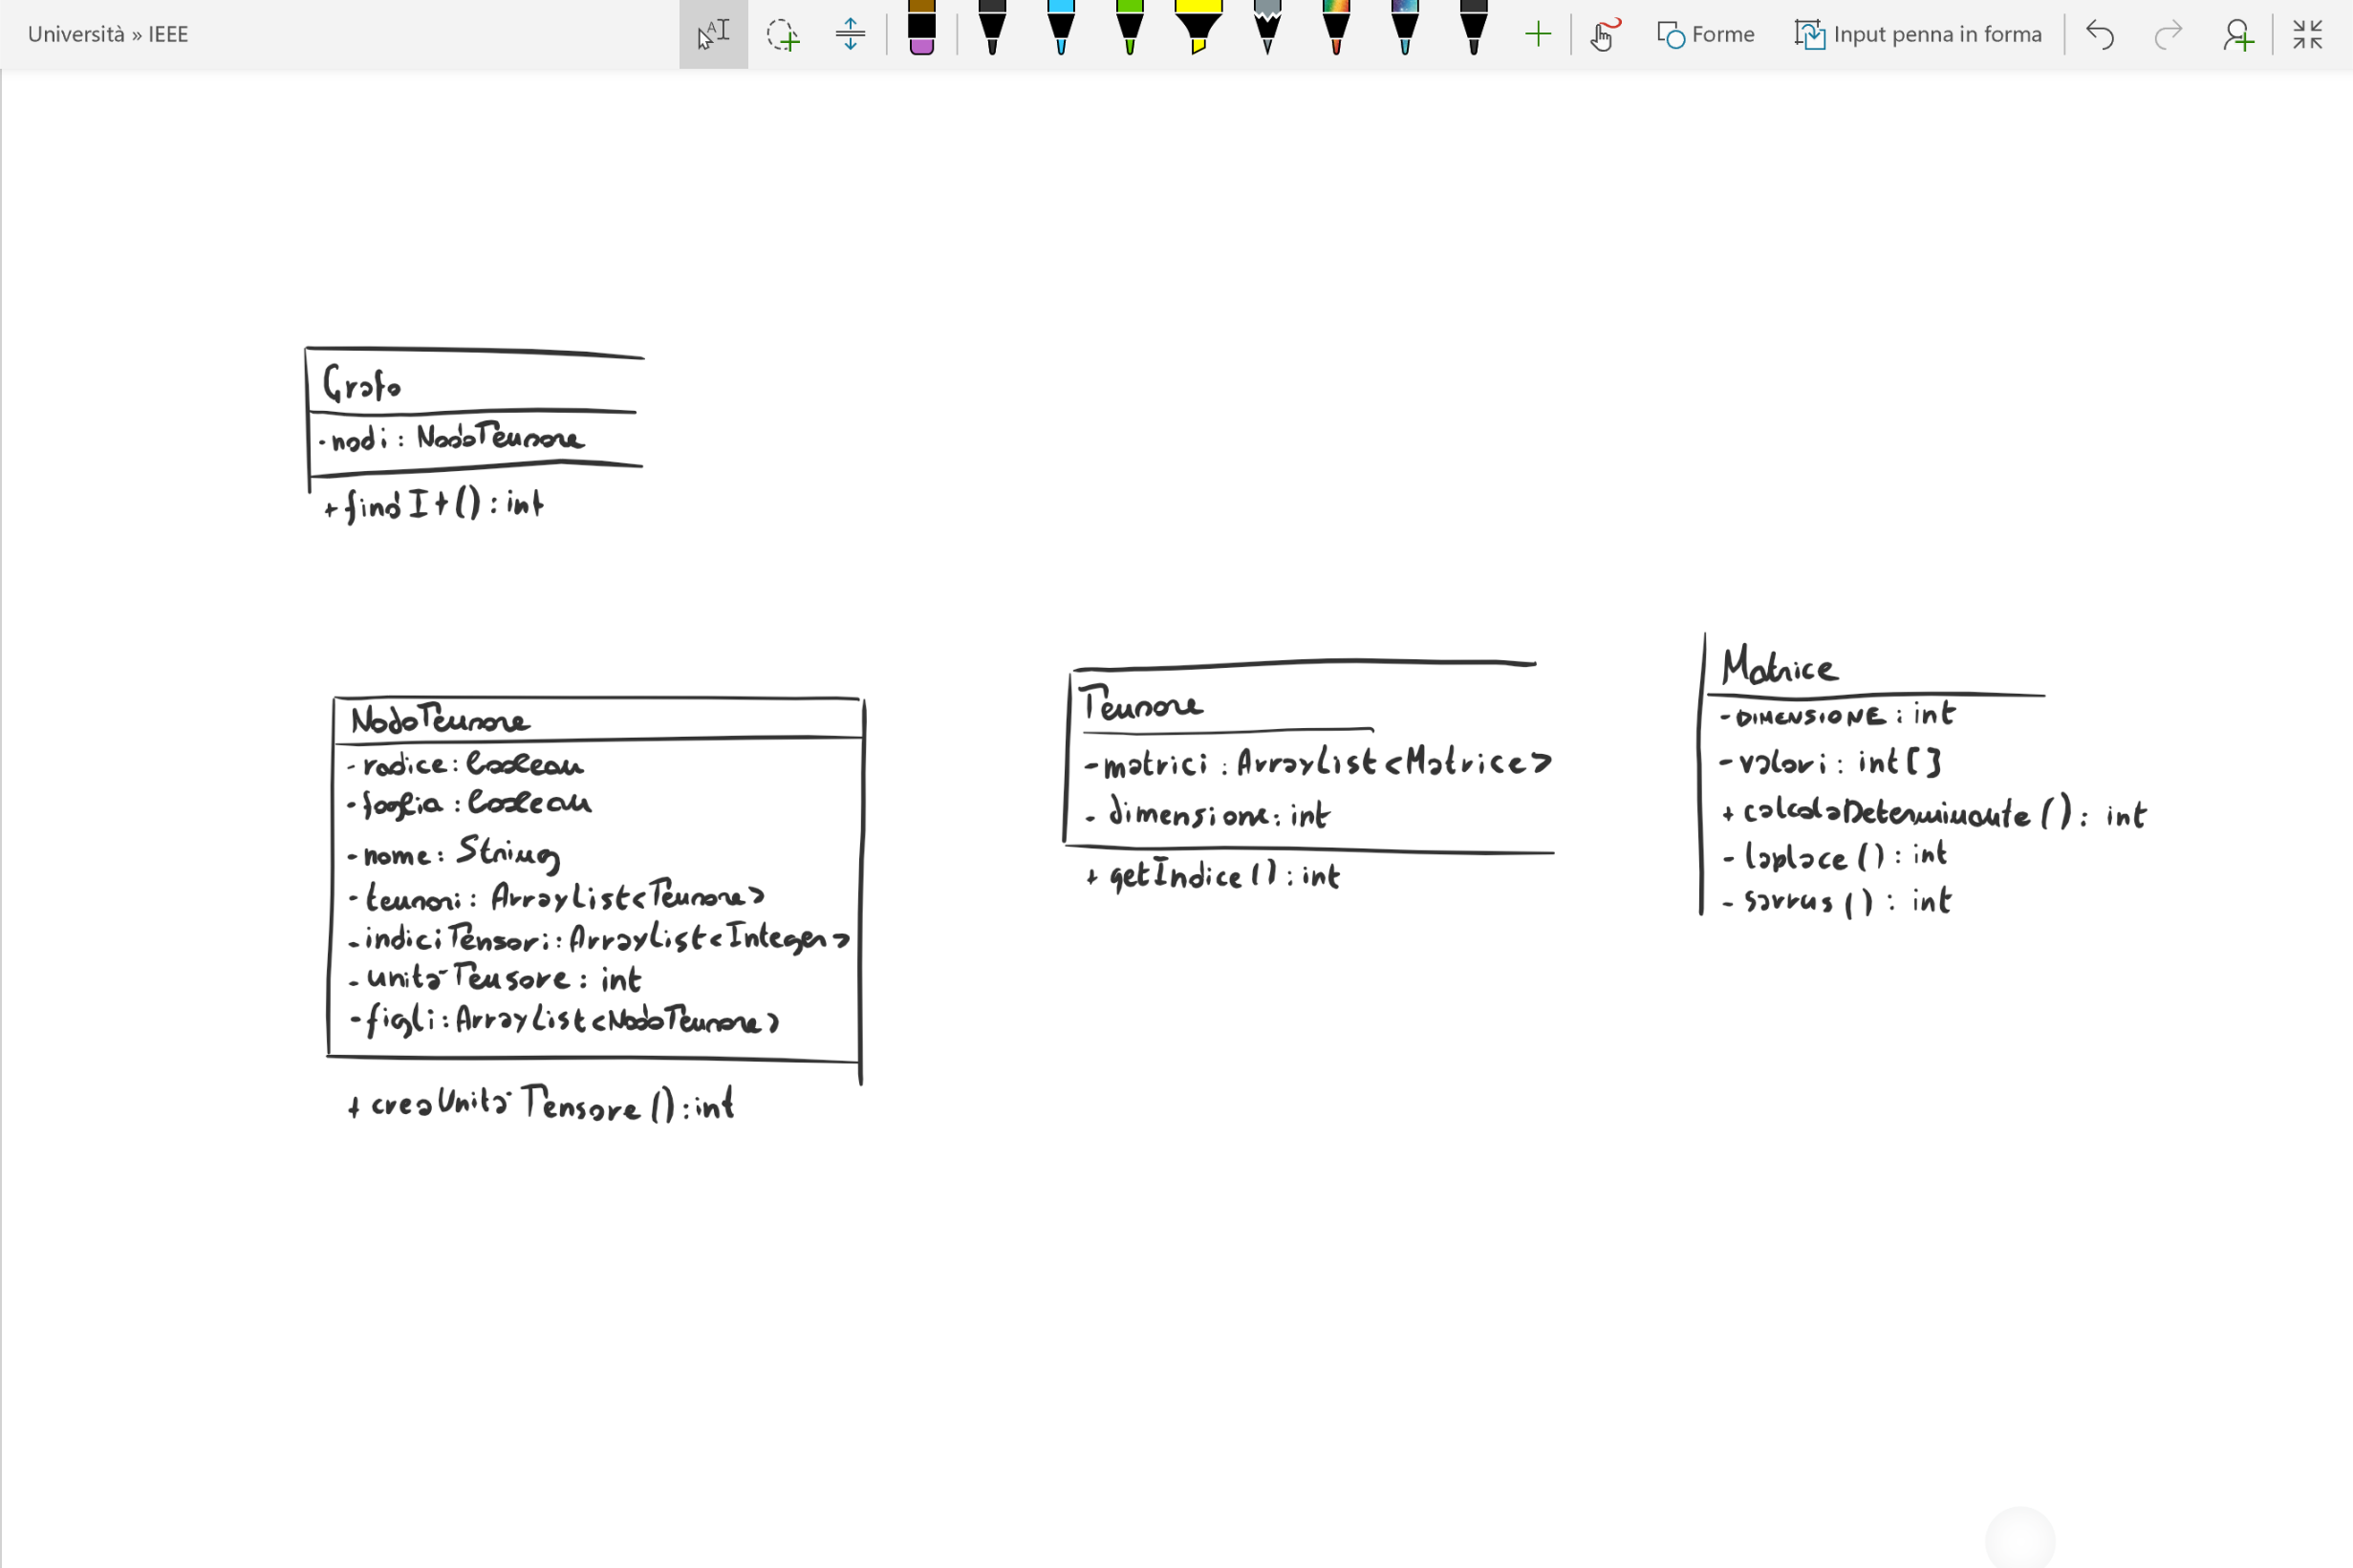 Università » IEEE
Forme
Input penna in forma
Grafo
- nodi : NodoTensore
+ findIt() : int
NodoTensore
- radice : boolean
- foglia : boolean
- nome : String
- tensori : ArrayList<Tensore>
- indiciTensori : ArrayList<Integer>
- unitàTensore : int
- figli : ArrayList<NodoTensore>
+ creaUnitàTensore() : int
Tensore
- matrici : ArrayList<Matrice>
- dimensione : int
+ getIndice() : int
Matrice
- DIMENSIONE : int
- valori : int[]
+ calcolaDeterminante() : int
- laplace() : int
- sarrus() : int